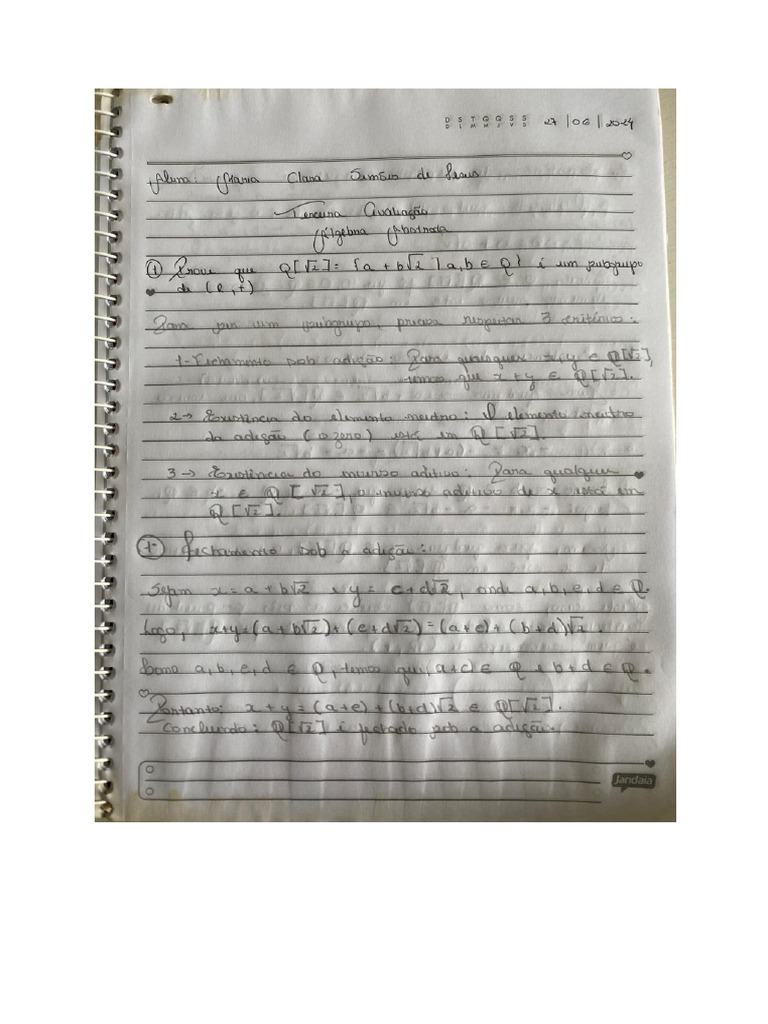 D S T Q Q S S
D L M M J V S 27 / 06 / 2024
Aluna: Maria Clara Simões de Jesus
Terceira Avaliação
Álgebra Abstrata
① Prove que Q[√2] = {a + b√2 | a, b ∈ Q} é um subgrupo
de (R, +)
Para ser um subgrupo, precisa respeitar 3 critérios:
1- Fechamento sob adição: Para quaisquer x, y ∈ Q[√2],
temos que x + y ∈ Q[√2].
2 → Existência do elemento neutro: O elemento neutro
da adição (o zero) está em Q[√2].
3 → Existência do inverso aditivo: Para qualquer
x ∈ Q[√2], o inverso aditivo de x está em
Q[√2].
1- Fechamento sob a adição:
Sejam x = a + b√2 e y = c + d√2, onde a, b, c, d ∈ Q.
Logo, x+y = (a + b√2) + (c + d√2) = (a+c) + (b+d)√2.
Como a, b, c, d ∈ Q, temos que (a+c) ∈ Q e b+d ∈ Q.
Portanto: x + y = (a+c) + (b+d)√2 ∈ Q[√2].
Concluindo: Q[√2] é fechado sob a adição.
Jandaia